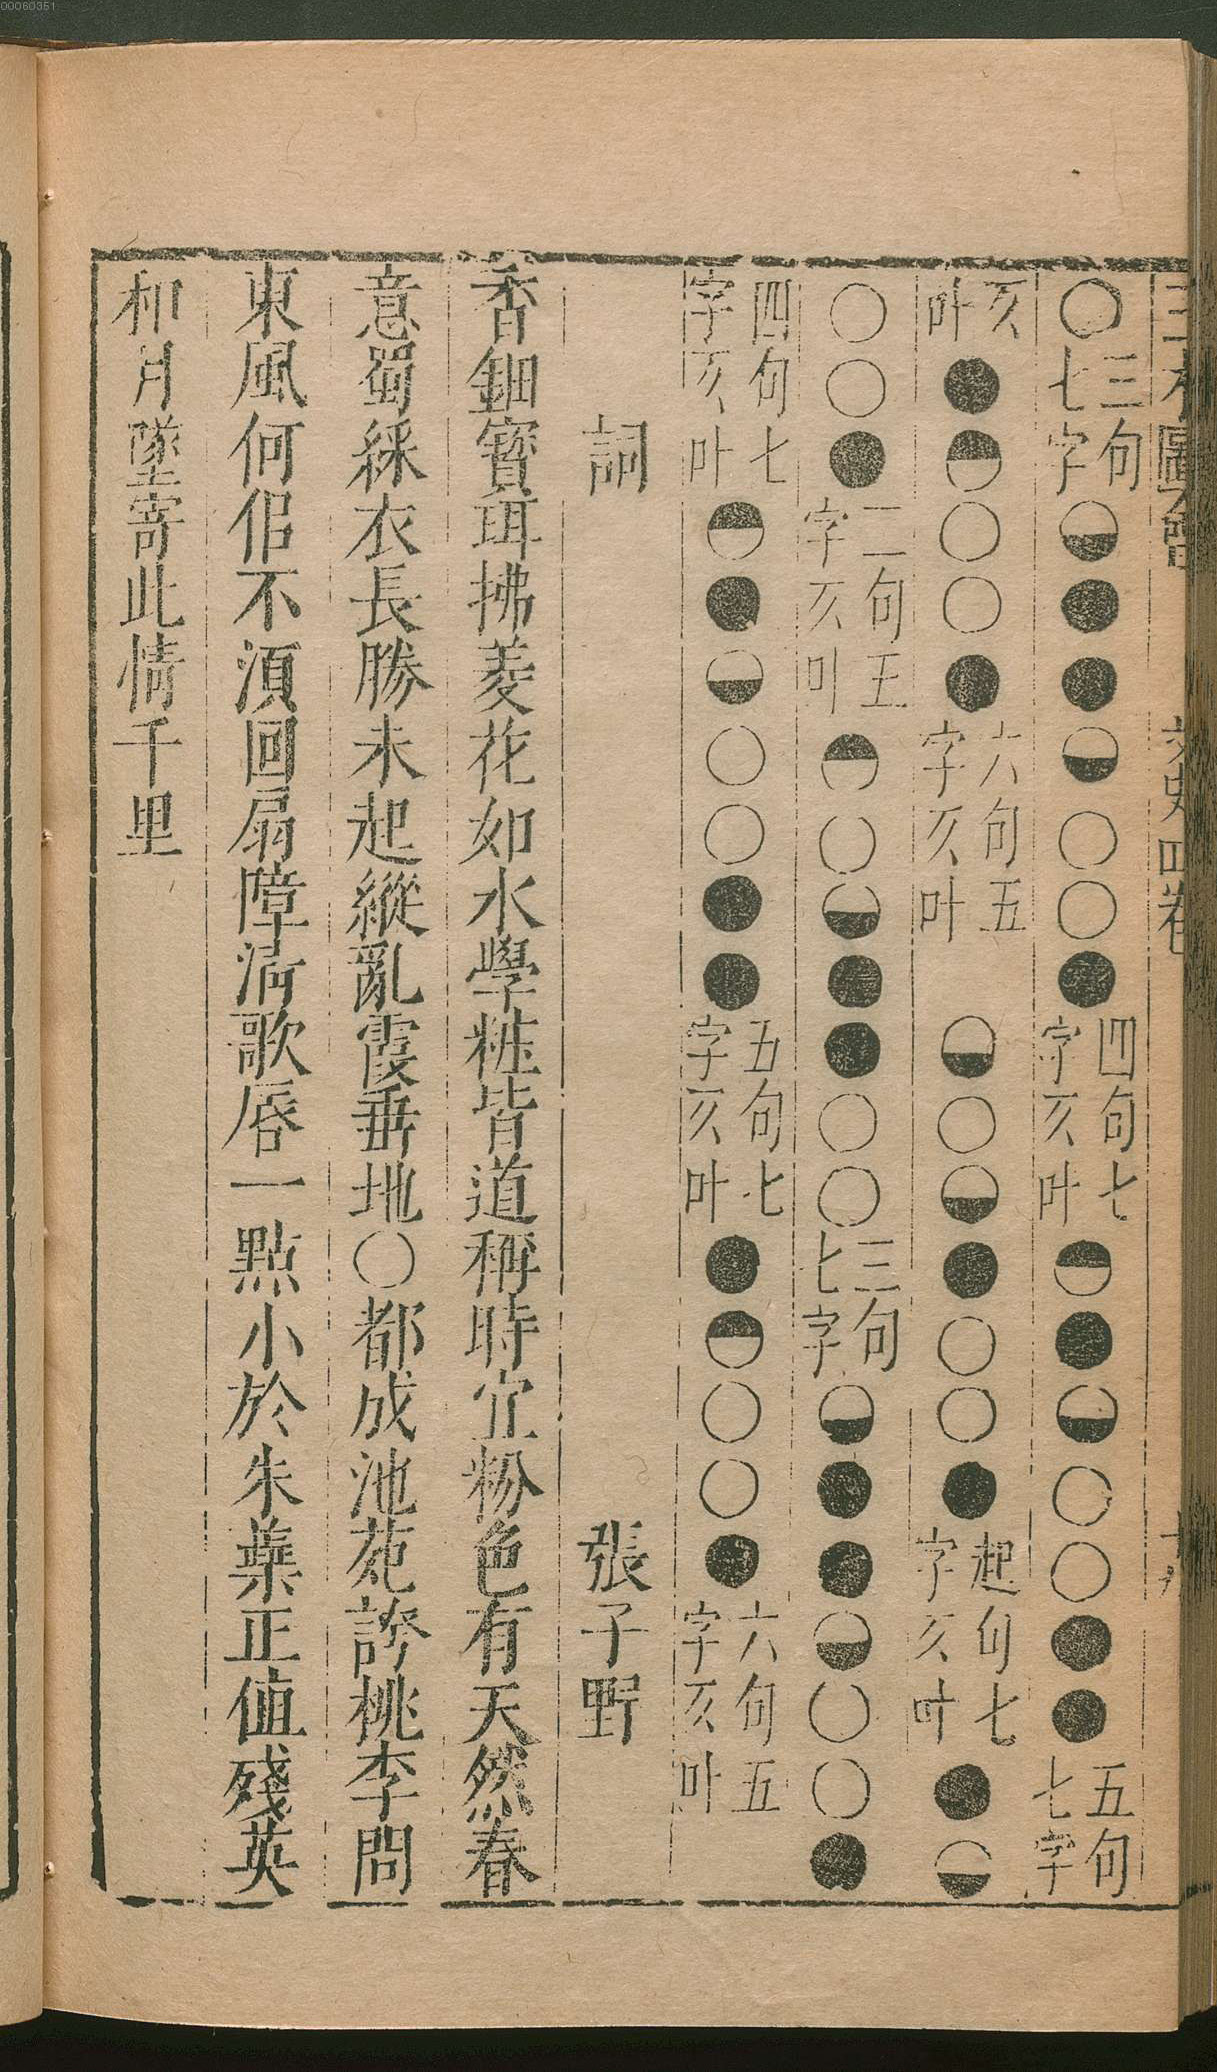 三才圖會 文史四卷
○三句七字◒●●◒○○●四句七字仄叶◓●◒○○●●五句七字
仄叶●◓○○●六句五字仄叶 ◒○◒●○○●起句七字仄叶●◒
○○●二句五字仄叶◓○◒●●○○三句七字◒●●◒○○●
四句七字仄叶◓●◒○○●●五句七字仄叶●◓○○●六句五字仄叶
詞 張子野
香鈿寶珥拂菱花如水學粧皆道稱時宜粉色有天然春
意蜀綵衣長勝未起縱亂霞垂地○都成池苑誇桃李問
東風何佀不須回扇障清歌唇一點小於朱蘂正值殘英
和月墜寄此情千里